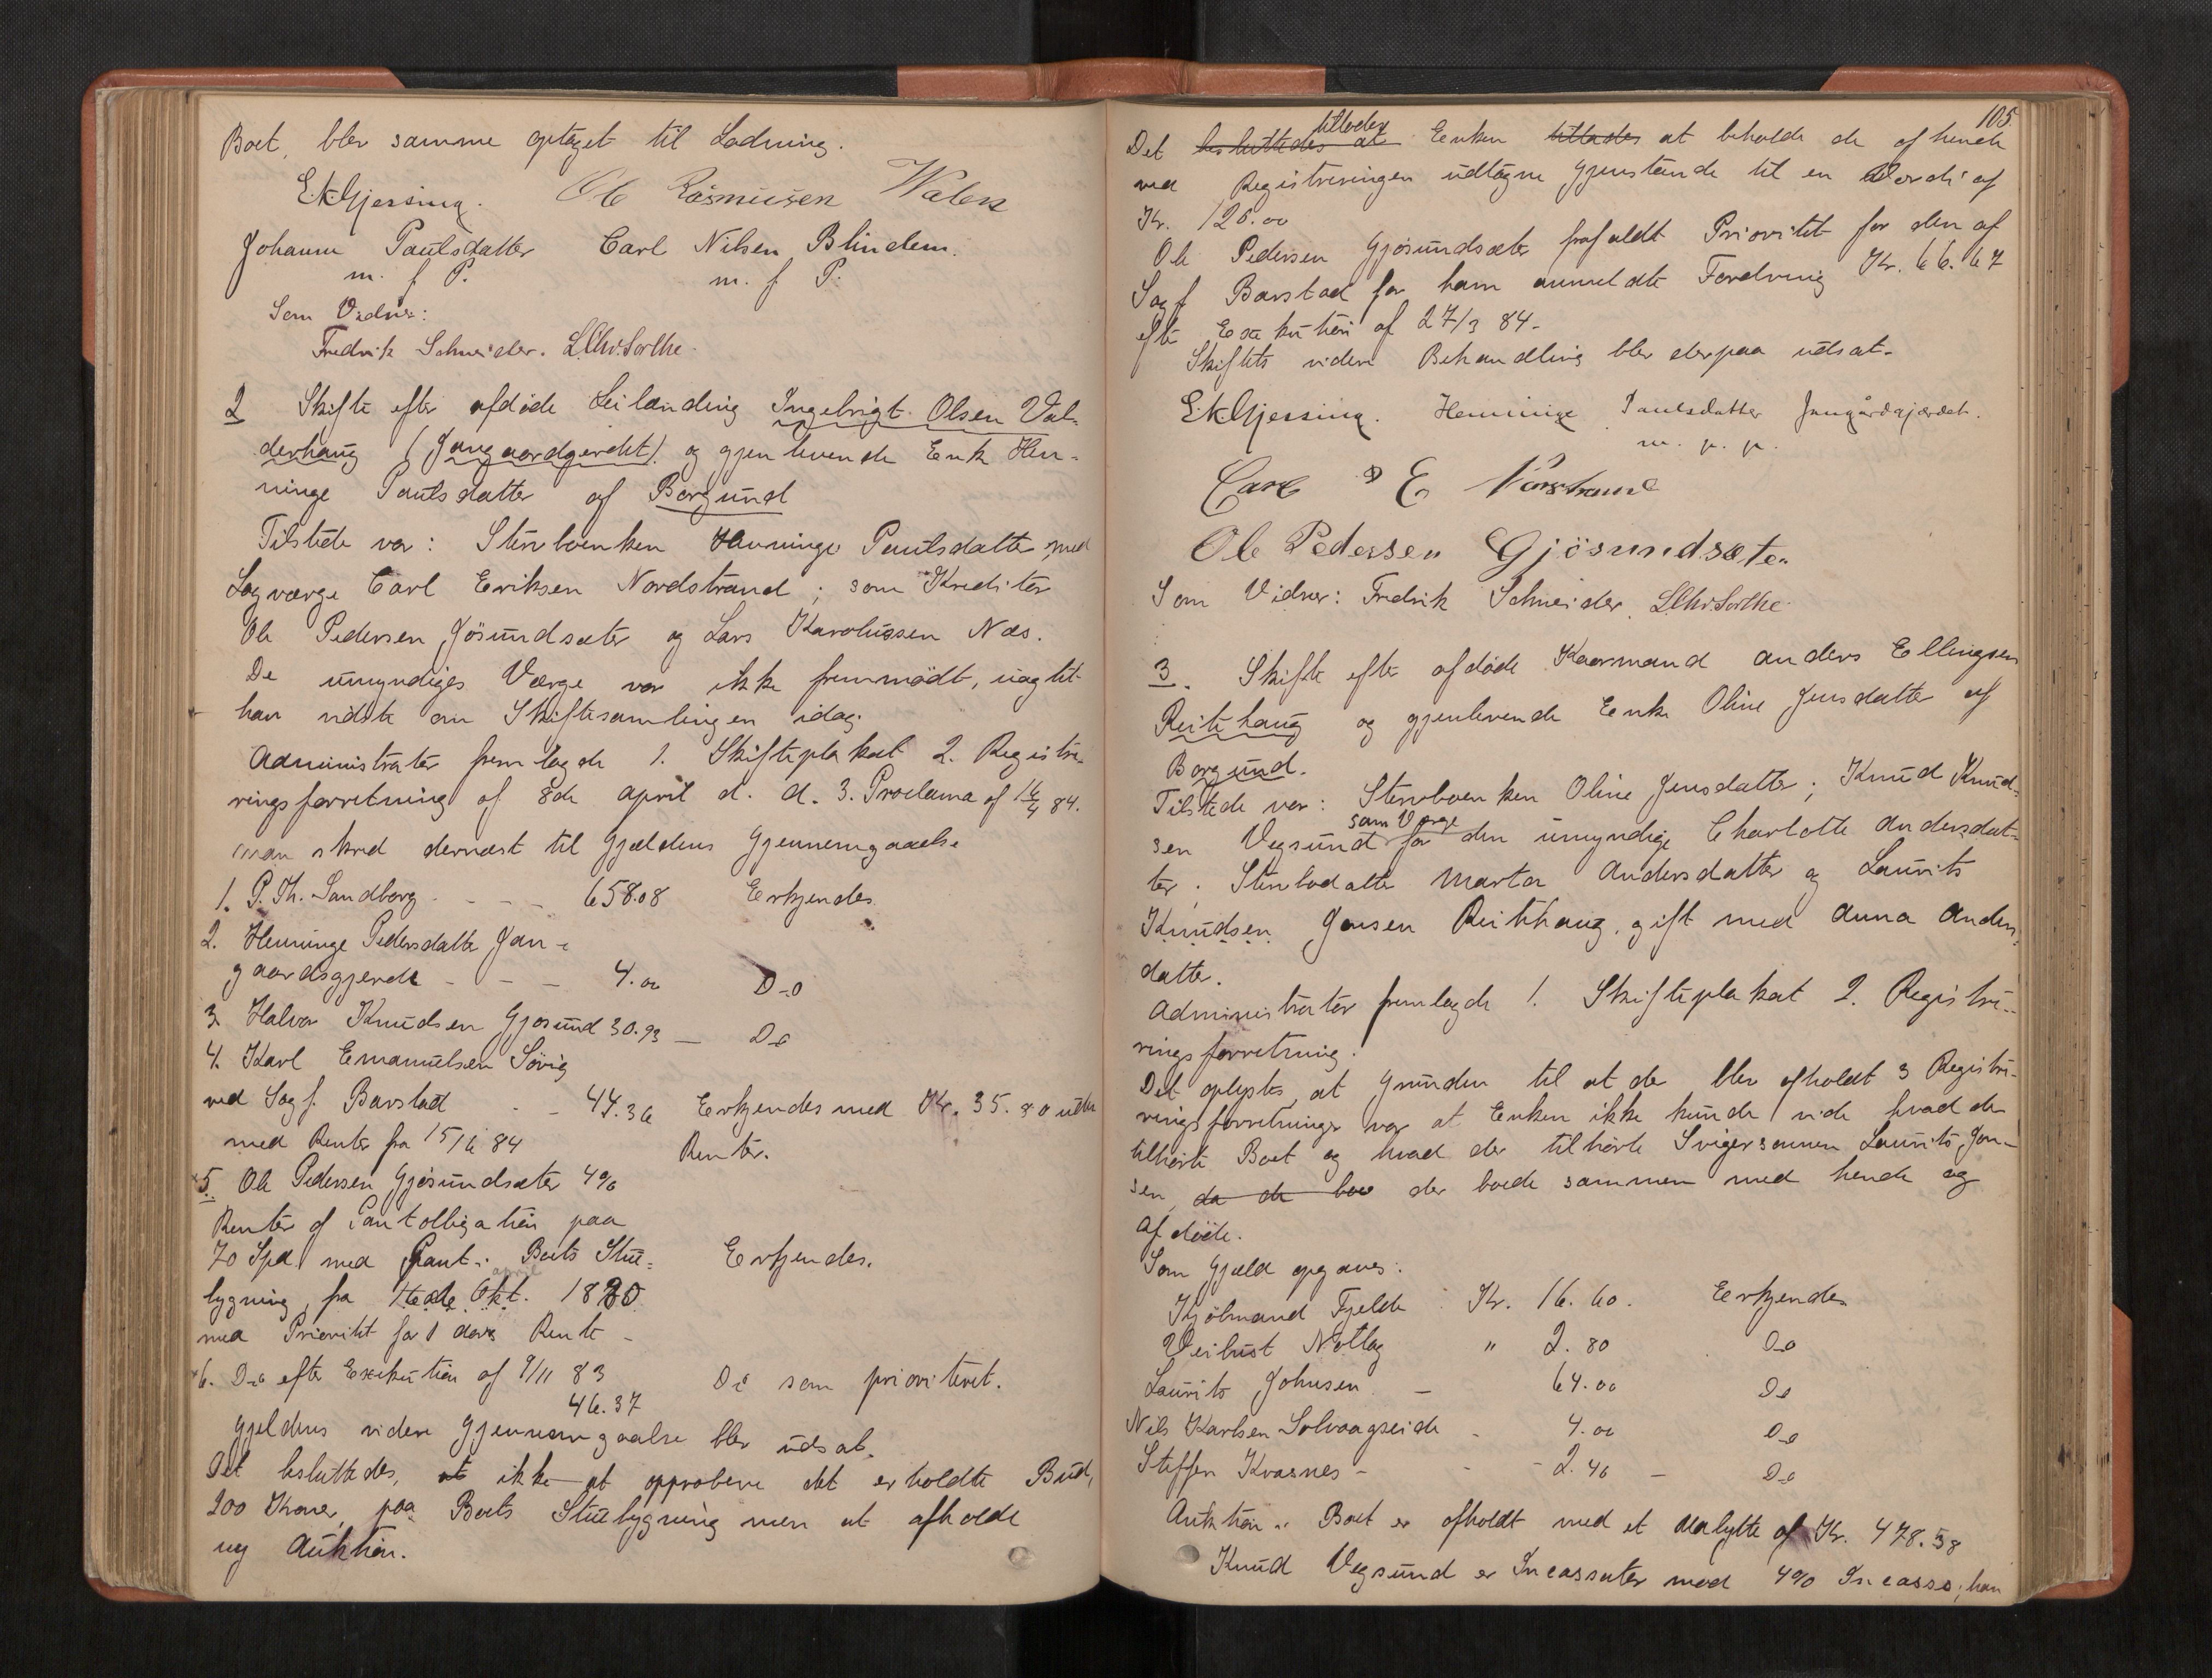 Boet, blev samme optaget til Lodning.
E.K.Gjessing. Ole Rasmusen Walen
Johanne Paulsdatter Carl Nilsen Blindem.
m. f P. m. f P.
Som Vidner:
Fredrik Schneider. L.Chr.Sorthe.
2 Skifte efter afdöde Leilænding Ingebrigt Olsen Val-
derhaug (Jangaardgerdet) og gjenlevende Enke Hen-
ninge Paulsdatter af Borgund
Tilstede var: Stervboenken Henninge Paulsdatter med
Lagværge Carl Eriksen Nordstrand; som Kreditor
Ole Pedersen Jösundsæter og Lars Karolussen Næs.
De umyndiges Værge var ikke fremmödt, uagtet
han vidste om Skiftesamlingen idag.
Administrator fremlagde 1. Skifteplakat 2. Registre-
ringsforretning af 8de April d. A. 3. Proclama af 16/4 84.
Man skred dernæst til Gjældens Gjennemgaaelse
1. P. Th. Sandborg - - - 658.08 Erkjendes
2. Henninge Pedersdatter Jan-
gaardsgjerde - - - 4.00 Do
3. Halvor Knudsen Gjosund 30.93 — Do
4. Karl Emanuelsen Sövig
ved Sagf. Barstad - - 44.36 Erkjendes med Kr. 35.80 uden
med Renter fra 15/6 84 Renter.
5. Ole Pedersen Gjösundsæter 4%
Renter af Pantobligation paa
70 Spd. med Pant i Boets Stue- Erkjendes.
april
bygning, fra 14de Okt. 1880
med Prioritet for 1 Aars Rente -
6. Do efter Exekution af 9/11 83 Do som prioriteret.
46.37
Gjeldens videre Gjennemgaaelse blev udsat.
Det besluttedes, at ikke at approbere det erholdte Bud,
200 Kroner, paa Boets Stuebygning men at afholde
ny Auktion.
105
tillodes
Det besluttedes at Enken tillades at beholde de af hende
ved Registreringen udtagne Gjenstande til en Værdi af
Kr. 126.00
Ole Pedersen Gjösundsæter frafaldt Prioritet for den af
Sagf Barstad for ham anmeldte Fordring Kr. 66.67
efter Exekution af 27/3 84.
Skiftets videre Behandling blev derpaa udsat.
E.K.Gjessing. Henninge Paulsdatter Jangårdgjærdet.
m. p. p.
Carl E Norstrand
Ole Pedersen Gjösundsæter
Som Vidner: Fredrik Schneider. L.Chr.Sorthe.
3. Skifte efter afdöde Kaarmand Anders Ellingsen
Reitehaug og gjenlevende Enke Oline Jensdatter af
Borgund.
Tilstede var: Stervboenken Oline Jensdatter; Knud Knud-
som Værge
sen Vegsund for den umyndige Charlotte Andersdat-
ter; Stervbodatter Marta Andersdatter og Laurits
Knudsen Jonsen Reitehaug, gift med Anna Anders-
datter.
Administrator fremlagde 1. Skifteplakat 2. Registre-
ringsforretning.
Det oplystes, at Grunden til at der blev afholdt 3 Registre-
ringsforretninger var at Enken ikke kunde vide hvad der
tilhörte Boet og hvad der tilhörte Svigersönnen Laurits Jon-
sen, da de boe der boede sammen med hende og
Afdöde.
Som Gjæld opgaves:
Kjölmand Fjelde : Kr. 16.60. Erkjendes
Veibust Notlag " 2.80 Do
Laurits Johnsen — 64.00 Do
Nils Karlsen Solvaagseide - 4.00 Do
Steffen Kvasnes - - - 2.40 — Do
Auktion i Boet er afholdt med et Udbytte af Kr. 478.58
Knud Vegsund er Incassator mod 4% Incasso; han